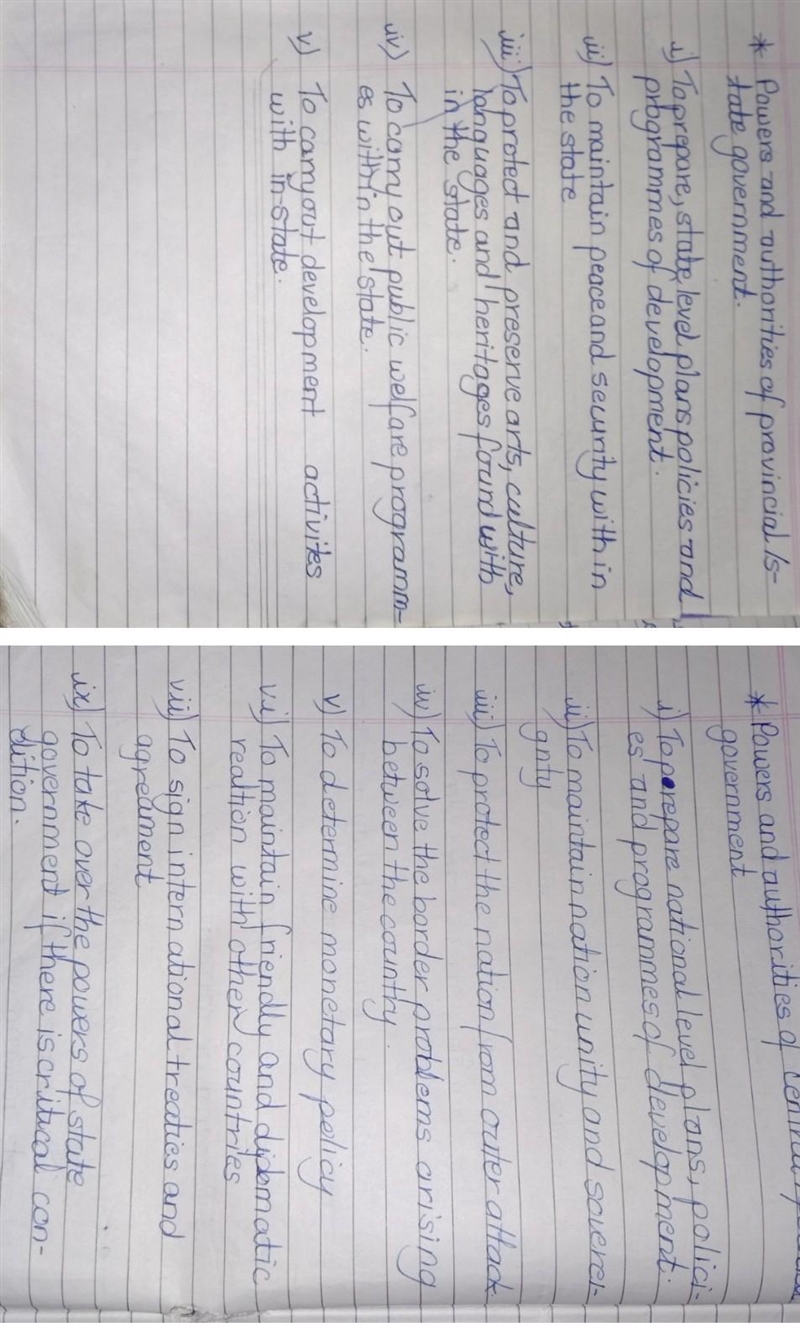 * Powers and authorities of provincial/s-
tate government.
i) To prepare, state level plans policies and
programmes of development.
ii) To maintain peace and security with in
the state
iii) To protect and preserve arts, culture,
languages and heritages found with
in the state.
iv) To carry out public welfare programm-
es with in the state.
v) To carry out development activites
with in state.
* Powers and authorities of
government
i) To prepare national level plans, polici-
es and programmes of development.
ii) To maintain nation unity and soverei-
gnty
iii) To protect the nation from outer attack
iv) To solve the border problems arising
between the country.
v) To determine monetary policy
vi) To maintain friendly and diplomatic
realtion with other countries
vii) To sign international treaties and
agreament
ix) To take over the powers of state
government if there is critical con-
dition.